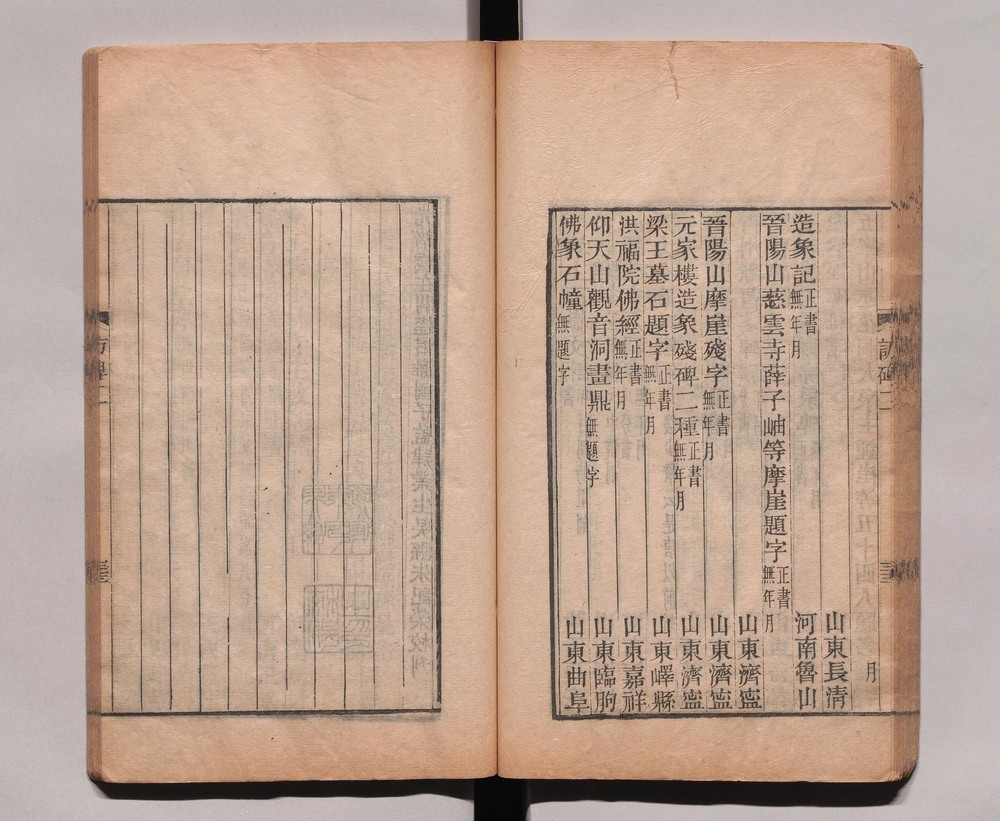 月
山東長清
造象記正書無年月 河南魯山
晉陽山慈雲寺薛子岫等摩崖題字正書無年月
山東濟寧
晉陽山摩崖殘字正書無年月 山東濟寧
元家樓造象殘碑二種正書無年月 山東濟寧
梁王墓石題字正書無年月 山東嶧縣
洪福院佛經正書無年月 山東嘉祥
仰天山觀音洞畫鼎無題字 山東臨朐
佛象石幢無題字 山東曲阜